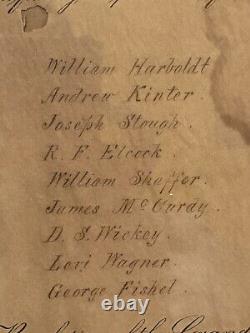 William Harboldt
Andrew Kinter.
Joseph Slough.
R. F. Elcock.
William Sheffer.
James McCurdy.
D. S. Wickey.
Levi Wagner.
George Fishel.